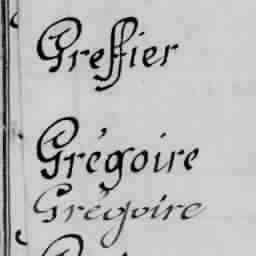 Greffier
Grégoire
Grégoire